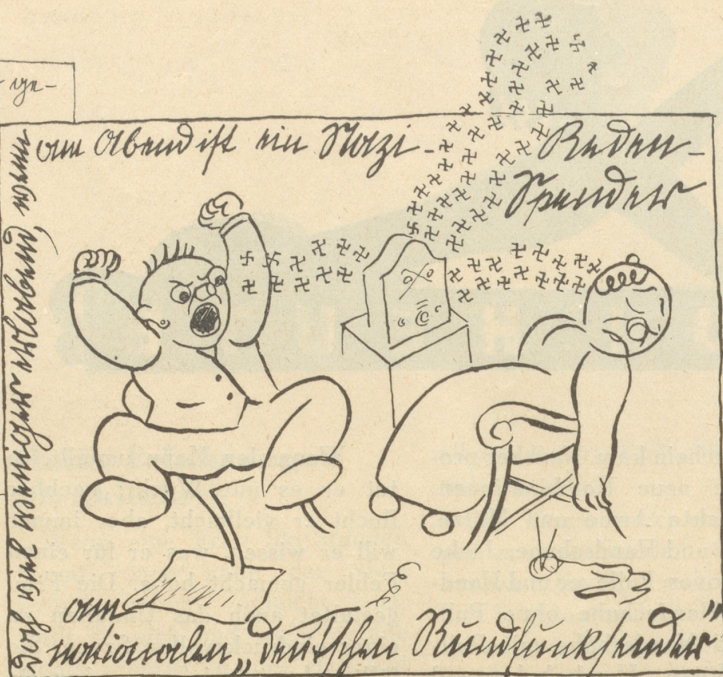 ge-
Doch viel weniger erlabend, wenn
am Abend ist ein Nazi-Reden-
Spender
am
nationalen „Deutschen Rundfunksender"